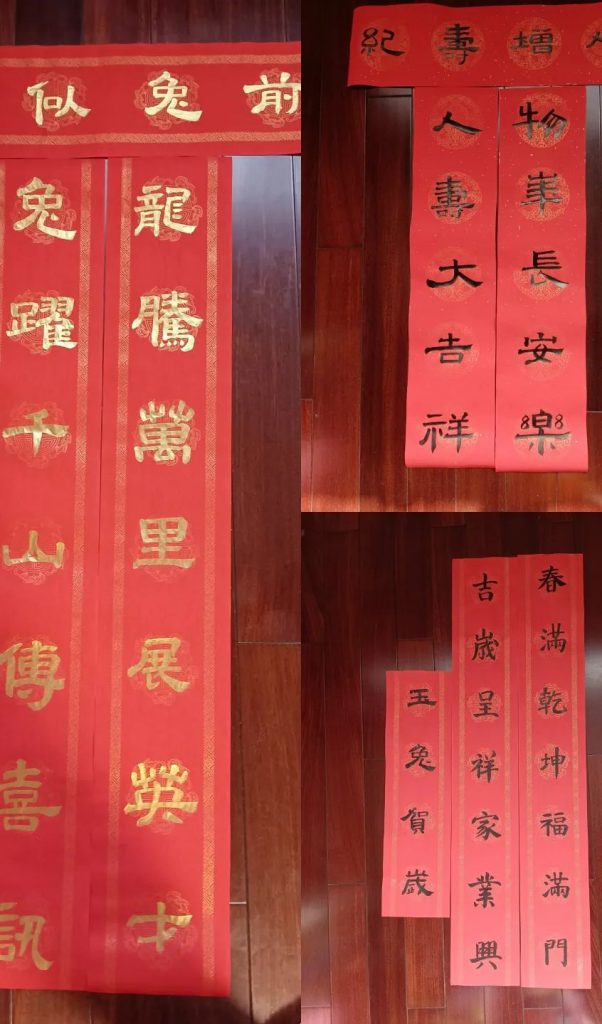 前兔似
龍騰萬里展英才
兔躍千山傳喜訊
增壽紀
物華長安樂
人壽大吉祥
春滿乾坤福滿門
吉歲呈祥家業興
玉兔賀歲